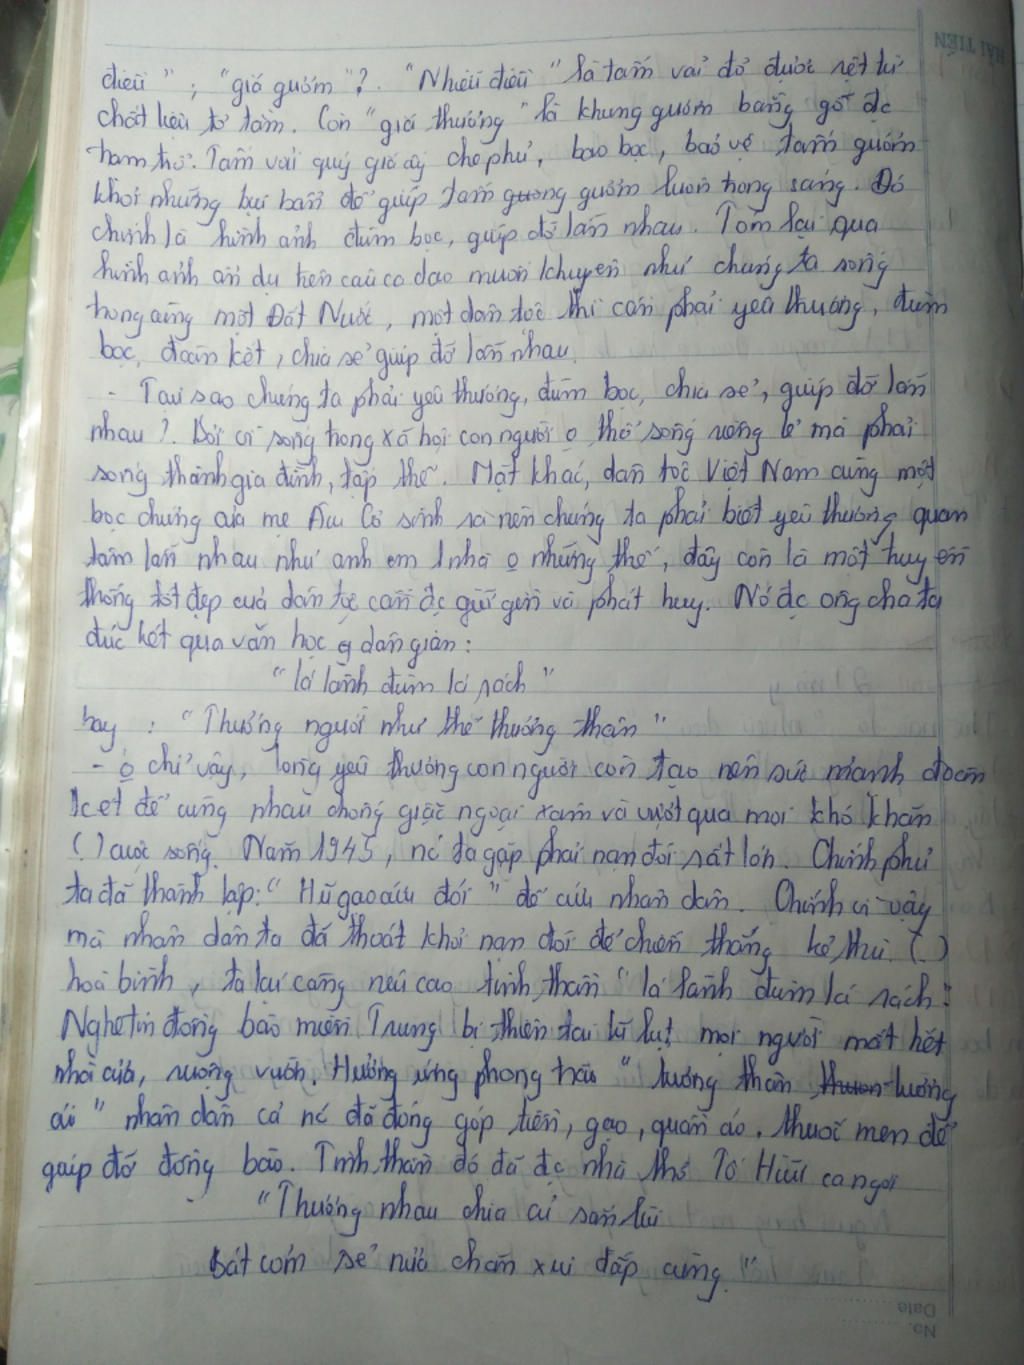 điều " ; "giá gương"? "Nhiễu điều" là tấm vải đỏ được dệt từ
chất liệu tơ tằm. Còn "giá thương" là khung gương bằng gỗ đc
Tấm vải quý giá ấy che phủ, bao bọc, bảo vệ tấm gương
khỏi những bụi bẩn để giúp tấm gương gương luôn trong sáng. Đó
chính là hình ảnh đùm bọc, giúp đỡ lẫn nhau. Tóm lại qua
hình ảnh ẩn dụ trên câu ca dao muốn khuyên như chúng ta sống
trong cùng một Đất Nước, một dân tộc thì cần phải yêu thương, đùm
bọc, đoàn kết, chia sẻ giúp đỡ lẫn nhau.
- Tại sao chúng ta phải yêu thương, đùm bọc, chia sẻ, giúp đỡ lẫn
nhau?. Bởi vì sống trong xã hội con người o thể sống riêng lẻ mà phải
sống thành gia đình, tập thể. Mặt khác, dân tộc Việt Nam cùng một
bọc chứng của mẹ Âu Cơ sinh ra nên chúng ta phải biết yêu thương quan
tâm lẫn nhau như anh em 1 nhà o những thế, đây còn là một truyền
thống tốt đẹp của dân tộc cần đc giữ gìn và phát huy. Nó đc ông cha ta
đúc kết qua văn học dân gian:
"lá lành đùm lá rách"
hay : "Thương người như thể thương thân"
- o chỉ vậy, lòng yêu thương con người còn tạo nên sức mạnh đoàn
kết để cùng nhau chống giặc ngoại xâm và vượt qua mọi khó khăn
(.) cuộc sống. Năm 1945, nc ta gặp phải nạn đói rất lớn. Chính phủ
ta đã thành lập: "Hũ gạo cứu đói" để cứu nhân dân. Chính vì vậy
mà nhân dân ta đã thoát khỏi nạn đói để chiến thắng kẻ thù. (.)
hoà bình, ta lại càng nêu cao tinh thần "lá lành đùm lá rách".
Nghe tin đồng bào miền Trung bị thiên tai lũ lụt mọi người mất hết
nhà cửa, ruộng vườn. Hưởng ứng phong trào "tương thân tương
ái" nhân dân cả nc đã đóng góp tiền, gạo, quần áo, thuốc men để
giúp đỡ đồng bào. Tinh thần đó đã đc nhà thơ Tố Hữu ca ngợi
"Thương nhau chia củ sắn lùi
Bát cơm sẻ nửa chăn xui đắp cùng"
No.
Date
HẢI TIẾN